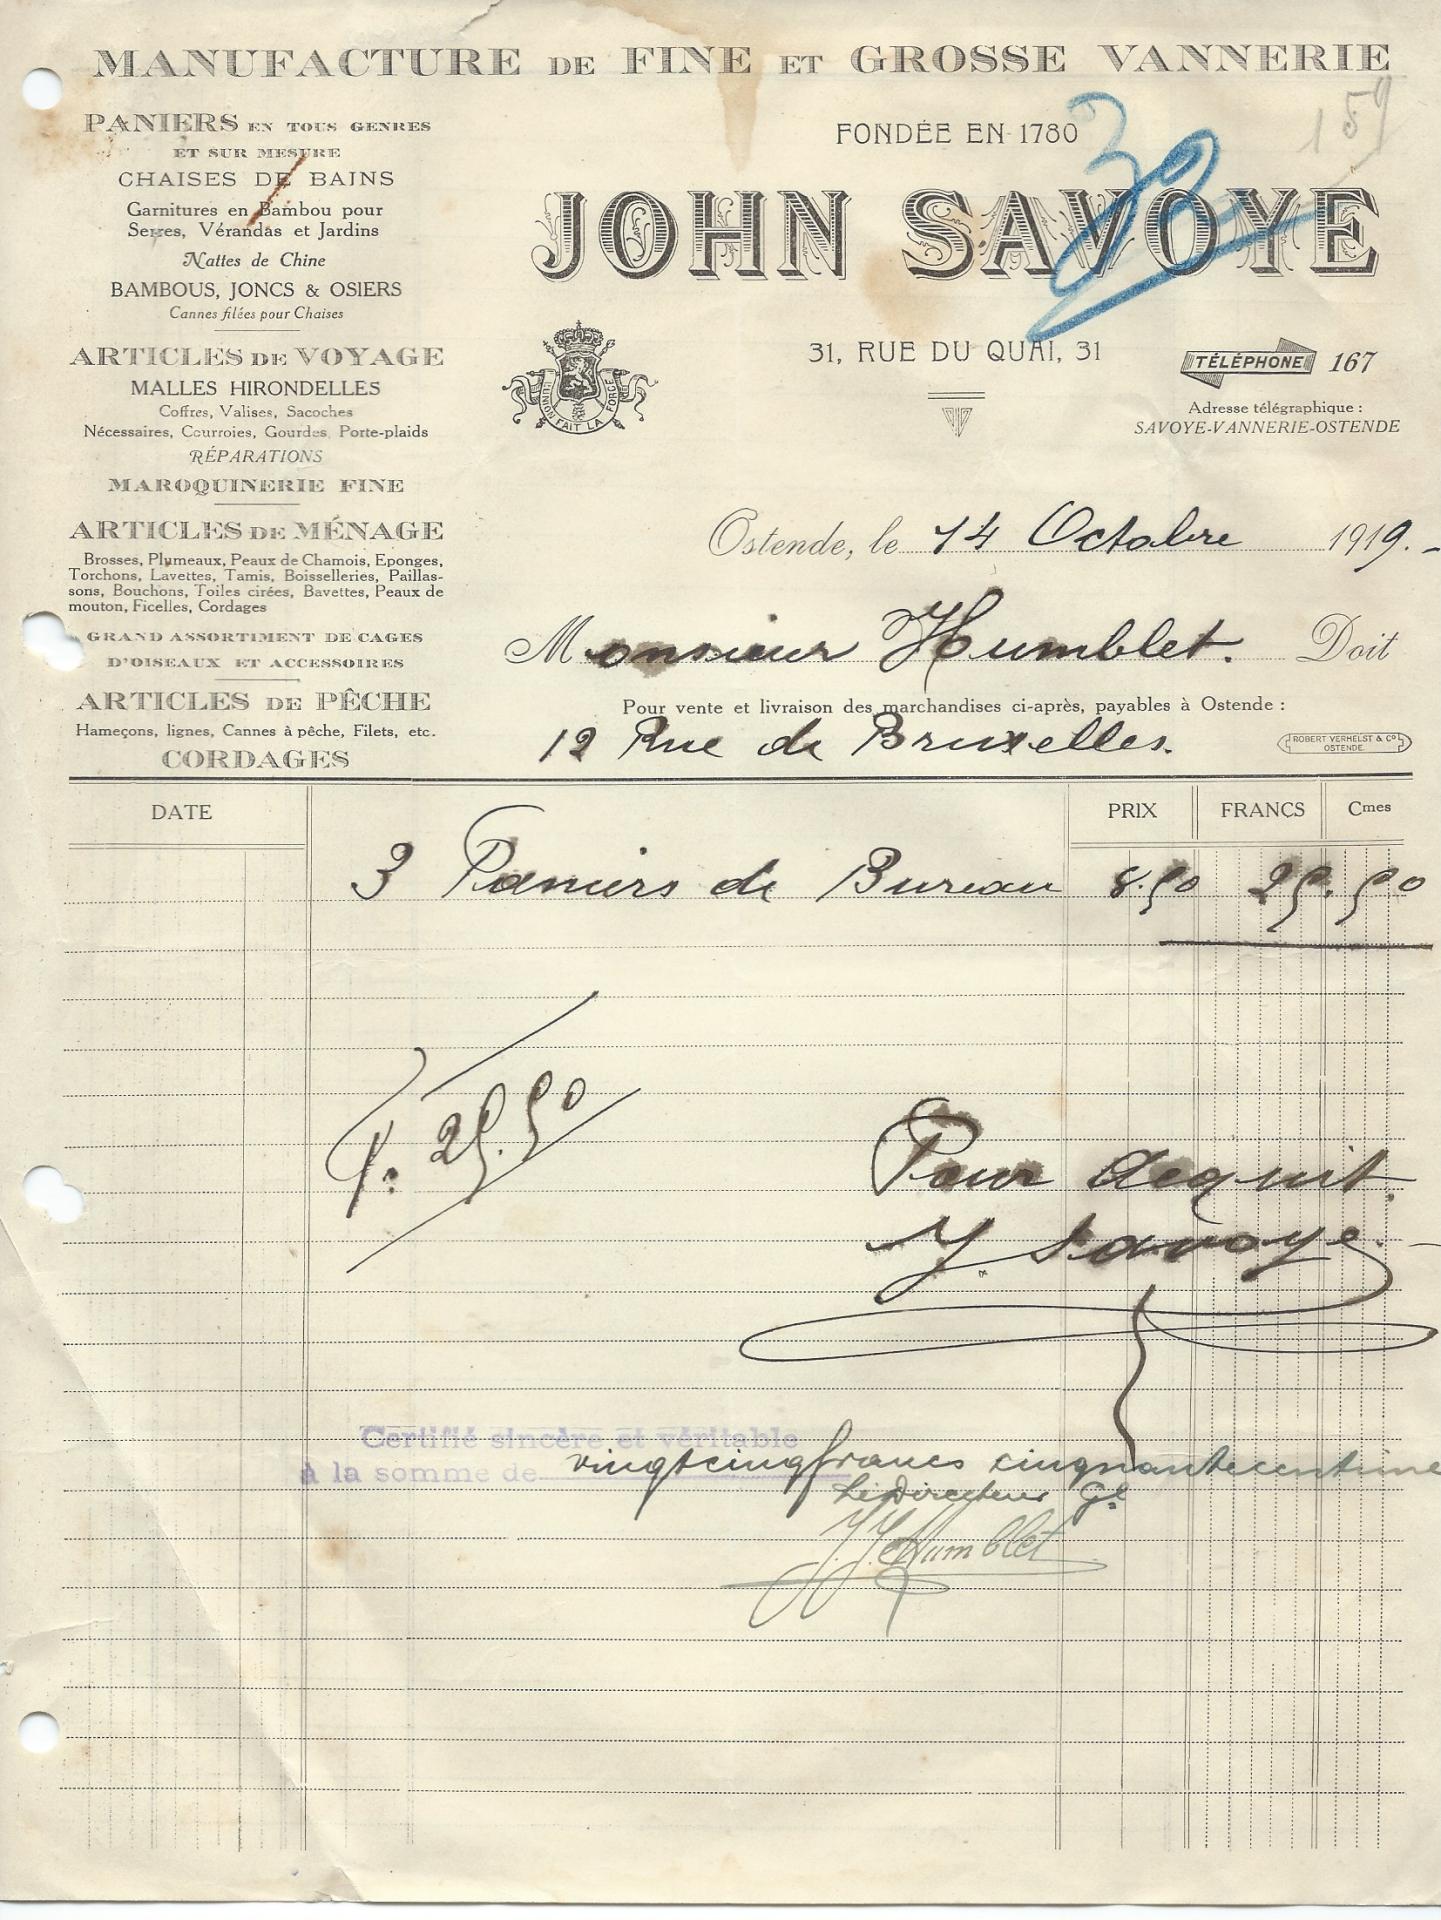 MANUFACTURE DE FINE ET GROSSE VANNERIE
159
FONDÉE EN 1780
JOHN SAVOYE
31, RUE DU QUAI, 31
TÉLÉPHONE 167
Adresse télégraphique :
SAVOYE-VANNERIE-OSTENDE
L'UNION FAIT LA FORCE
PANIERS EN TOUS GENRES
ET SUR MESURE
CHAISES DE BAINS
Garnitures en Bambou pour
Serres, Vérandas et Jardins
Nattes de Chine
BAMBOUS, JONCS & OSIERS
Cannes filées pour Chaises
ARTICLES DE VOYAGE
MALLES HIRONDELLES
Coffres, Valises, Sacoches
Nécessaires, Courroies, Gourdes, Porte-plaids
RÉPARATIONS
MAROQUINERIE FINE
ARTICLES DE MÉNAGE
Brosses, Plumeaux, Peaux de Chamois, Eponges,
Torchons, Lavettes, Tamis, Boisselleries, Paillas-
sons, Bouchons, Toiles cirées, Bavettes, Peaux de
mouton, Ficelles, Cordages
GRAND ASSORTIMENT DE CAGES
D'OISEAUX ET ACCESSOIRES
ARTICLES DE PÊCHE
Hameçons, lignes, Cannes à pêche, Filets, etc.
CORDAGES
Ostende, le 14 Octobre 1919.-
Monsieur Humblet. Doit
Pour vente et livraison des marchandises ci-après, payables à Ostende :
12 Rue de Bruxelles.
ROBERT VERHELST & Co
OSTENDE
DATE PRIX FRANCS Cmes
3 Paniers de Bureau 8.50 25.50
25.50
Pour acquit.
J. Savoye.
Certifié sincère et véritable
à la somme de vingtcinqfrancs cinquantecentime
Le Directeur Gl
J. J. Humblet